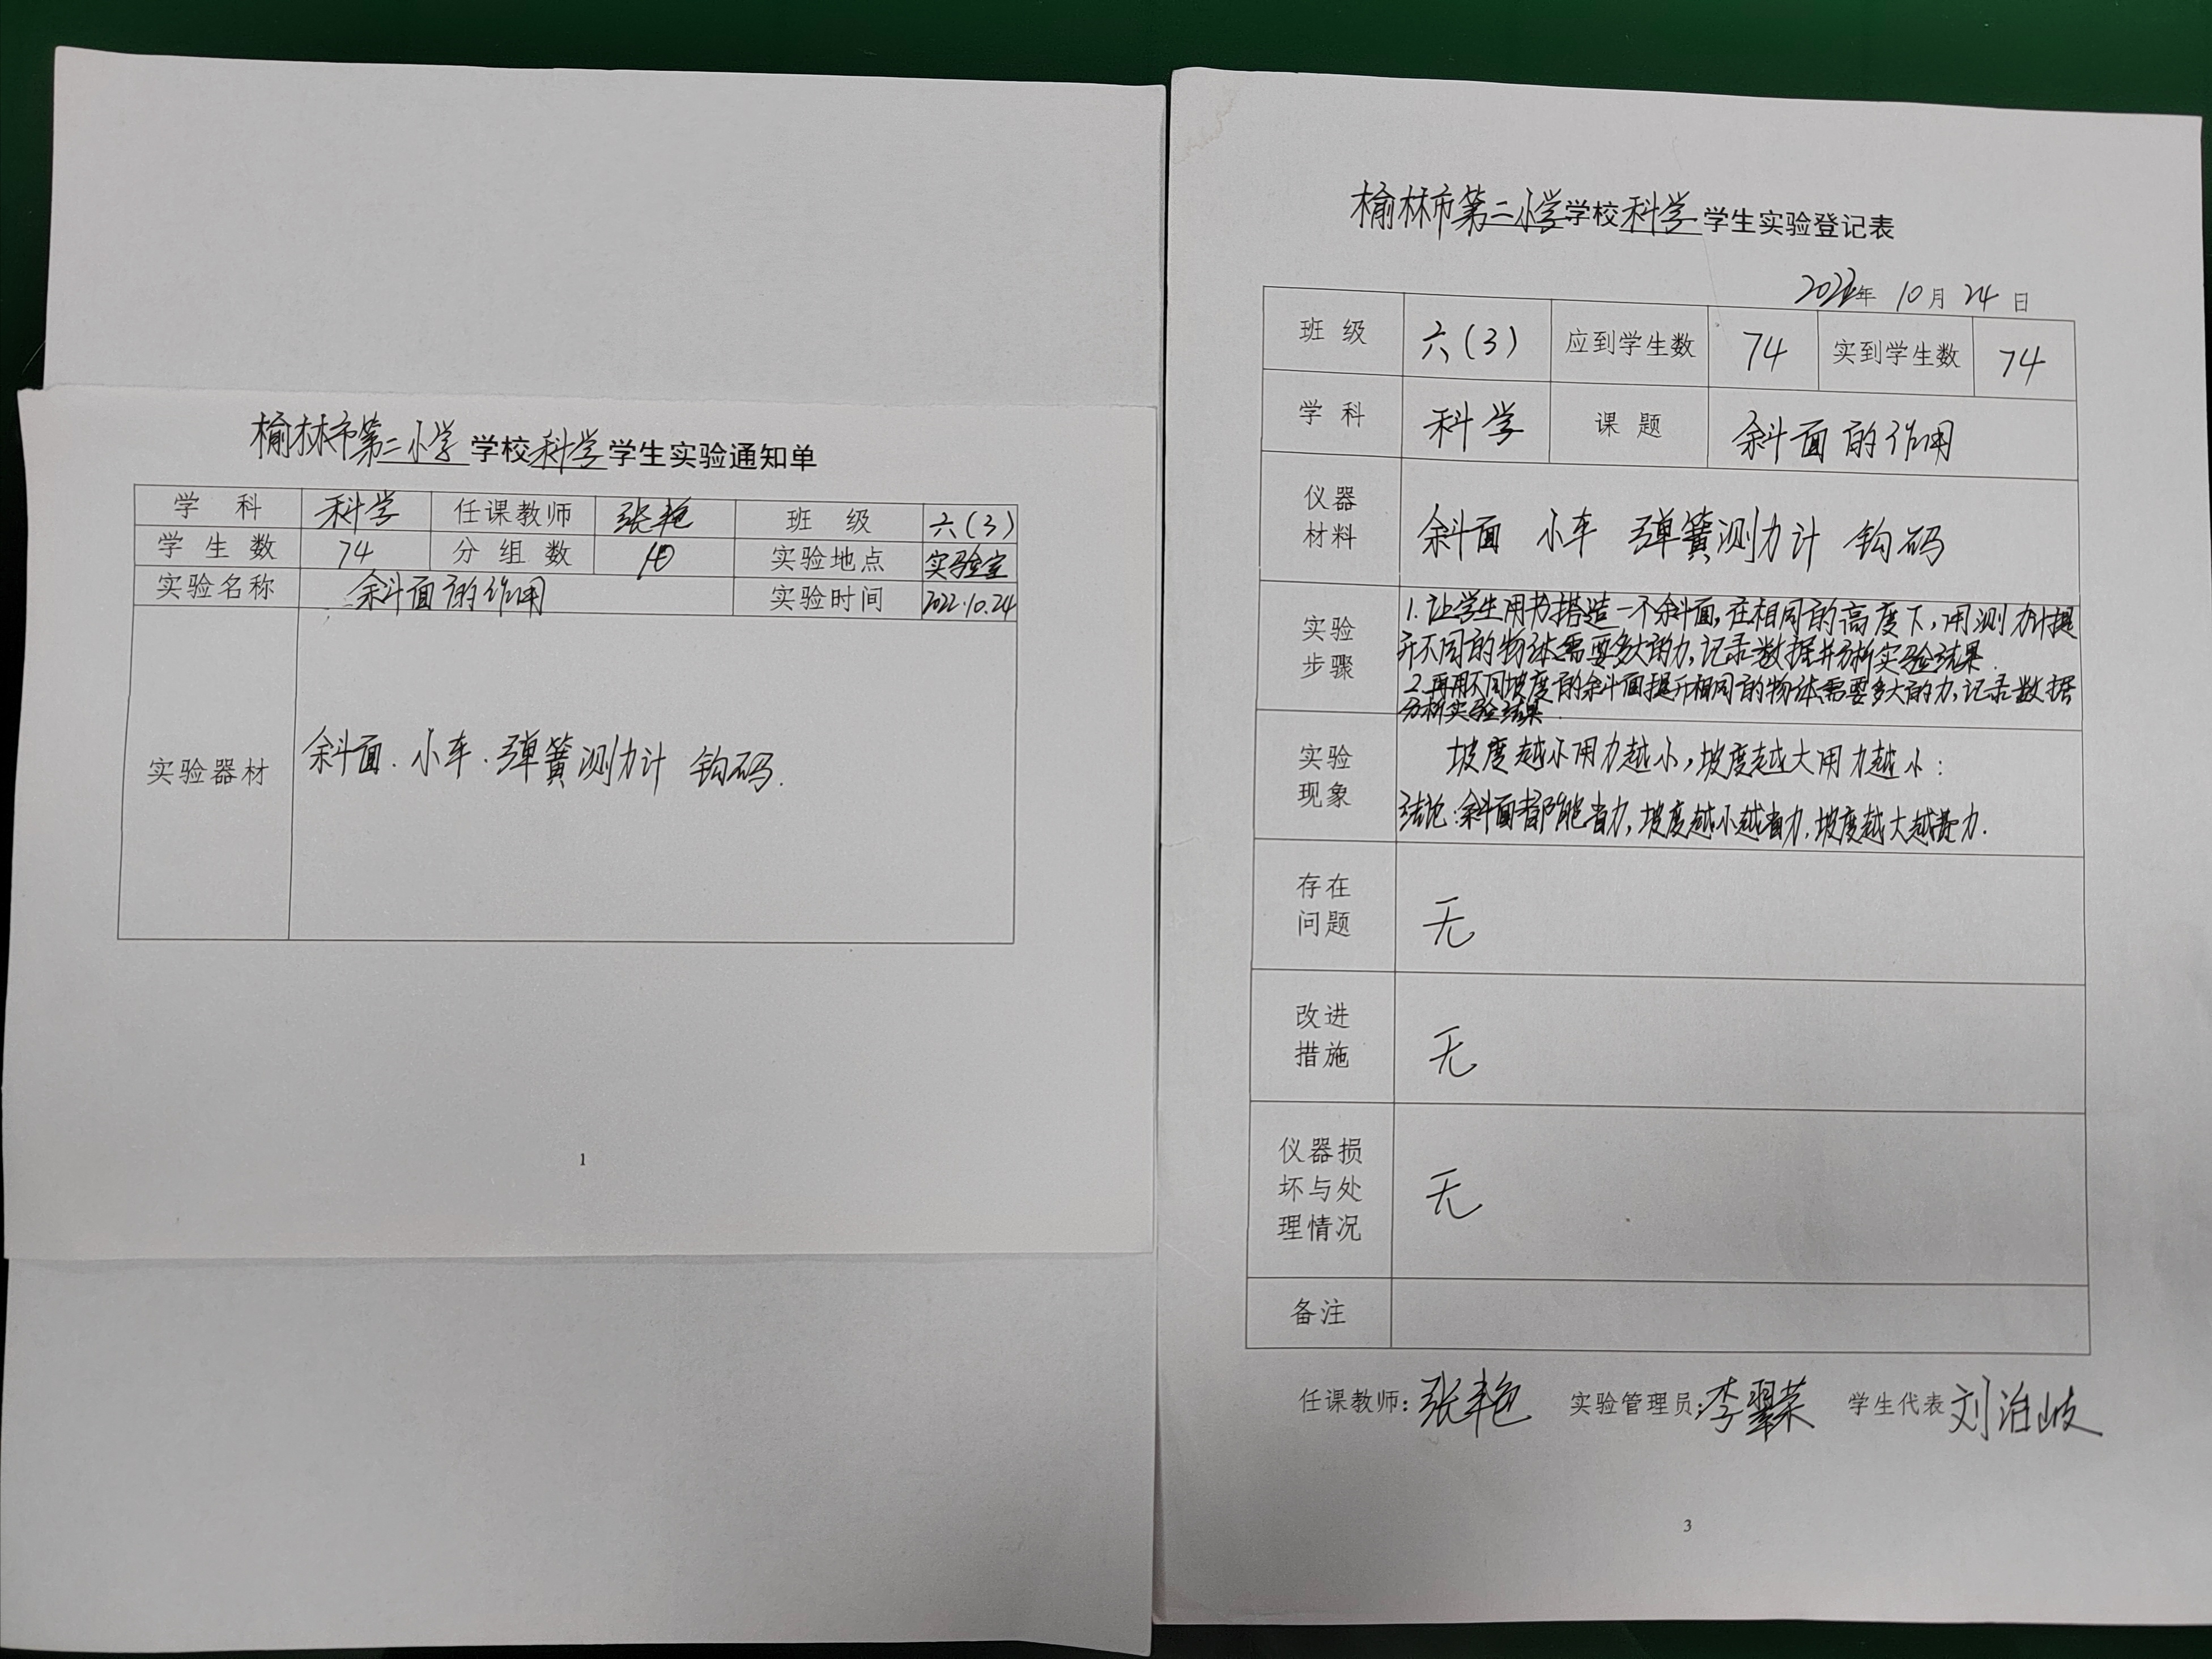 榆林市第二小学学校科学学生实验通知单
学科 科学 任课教师 张艳 班级 六(3)
学生数 74 分组数 10 实验地点 实验室
实验名称 斜面的作用 实验时间 2022.10.24
实验器材 斜面.小车.弹簧测力计 钩码.
1
榆林市第二小学学校科学学生实验登记表
2022年 10月 24日
班级 六(3) 应到学生数 74 实到学生数 74
学科 科学 课题 斜面的作用
仪器
材料
斜面 小车 弹簧测力计 钩码
实验
步骤
1.让学生用书搭造一个斜面,在相同的高度下,用测力计提
升不同的物体需要多大的力,记录数据并分析实验结果.
2.再用不同坡度的斜面提升相同的物体需要多大的力,记录数据
分析实验结果.
实验
现象
坡度越小用力越小,坡度越大用力越小:
结论:斜面都能省力,坡度越小越省力,坡度越大越费力.
存在
问题
无
改进
措施
无
仪器损
坏与处
理情况
无
备注
任课教师:张艳 实验管理员:李翠荣 学生代表 刘
3